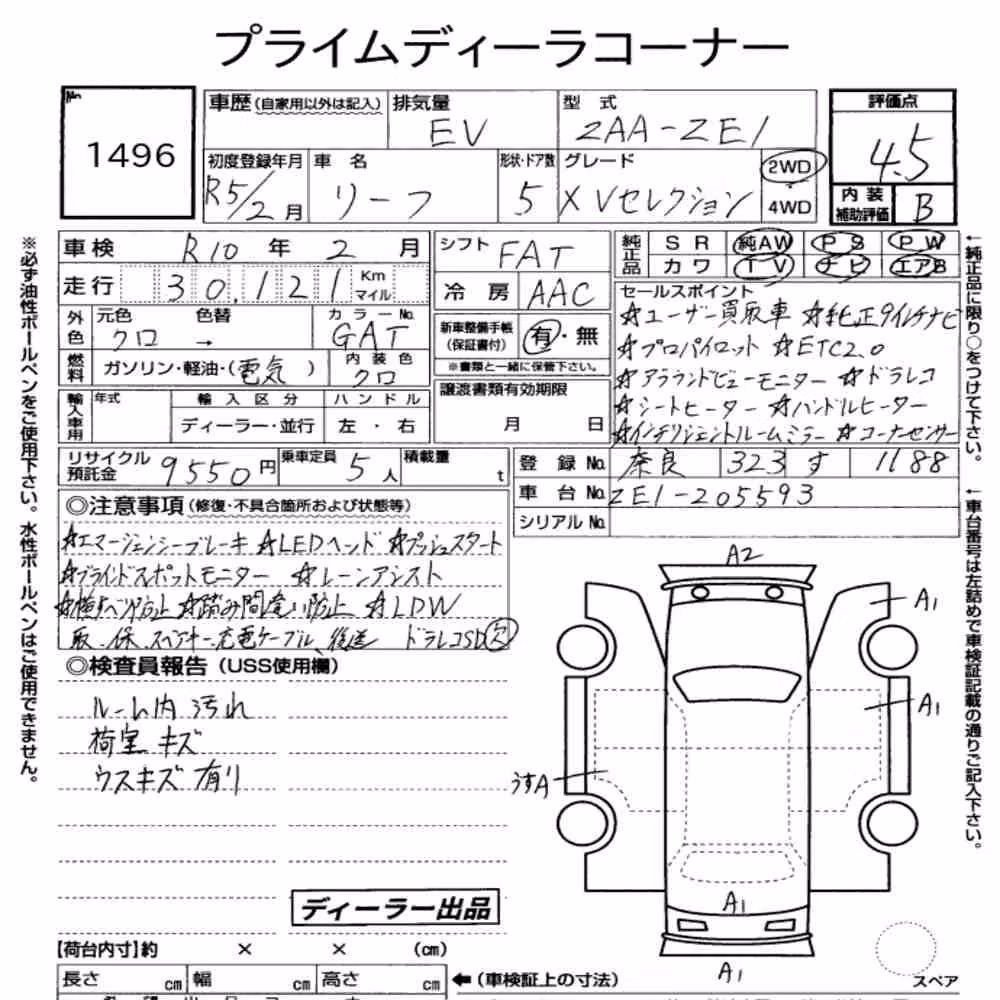 プライムディーラコーナー
No.
1496
車歴 (自家用以外は記入)
排気量
EV
型式
ZAA-ZE1
評価点
4.5
初度登録年月
R5/2月
車名
リーフ
形状・ドア数
5
グレード
X Vセレクション
2WD
4WD
内装補助評価
B
車検 R10年 2月
走行 30,121 Km マイル
外色 元色 クロ 色替 → カラーNo. GAT
燃料 ガソリン・軽油・(電気) 内装色 クロ
輸入車用 年式 輸入区分 ディーラー・並行 ハンドル 左・右
シフト FAT
冷房 AAC
新車整備手帳 (保証書付) 有・無
※書類と一緒に保管下さい。
譲渡書類有効期限
月 日
純正品 SR 純AW PS PW
カワ TV ナビ エアB
セールスポイント
☆ユーザー買取車 ☆純正9インチナビ
☆プロパイロット ☆ETC2.0
☆アラウンドビューモニター ☆ドラレコ
☆シートヒーター ☆ハンドルヒーター
☆インテリジェントルームミラー ☆コーナーセンサー
リサイクル預託金 9550円 乗車定員 5人 積載量 t
登録No. 奈良 323 す 1188
車台No. ZE1-205593
シリアルNo.
◎注意事項 (修復・不具合箇所および状態等)
☆エマージェンシーブレーキ ☆LEDヘッド ☆プッシュスタート
☆ブラインドスポットモニター ☆レーンアシスト
☆横すべり防止 ☆踏み間違い防止 ☆LDW
取.保.スペアキー.充電ケーブル、後送 ドラレコSD欠
◎検査員報告 (USS使用欄)
ルーム内 汚れ
荷室 キズ
ウスキズ 有り
A2
A1
A1
うすA
A1
A1
スペア
ディーラー出品
【荷台内寸】約 × × (cm)
長さ cm 幅 cm 高さ cm ←(車検証上の寸法)
※必ず油性ボールペンをご使用下さい。水性ボールペンはご使用できません。
←純正品に限り○をつけて下さい。
←車台番号は左詰めで車検証記載の通りご記入下さい。